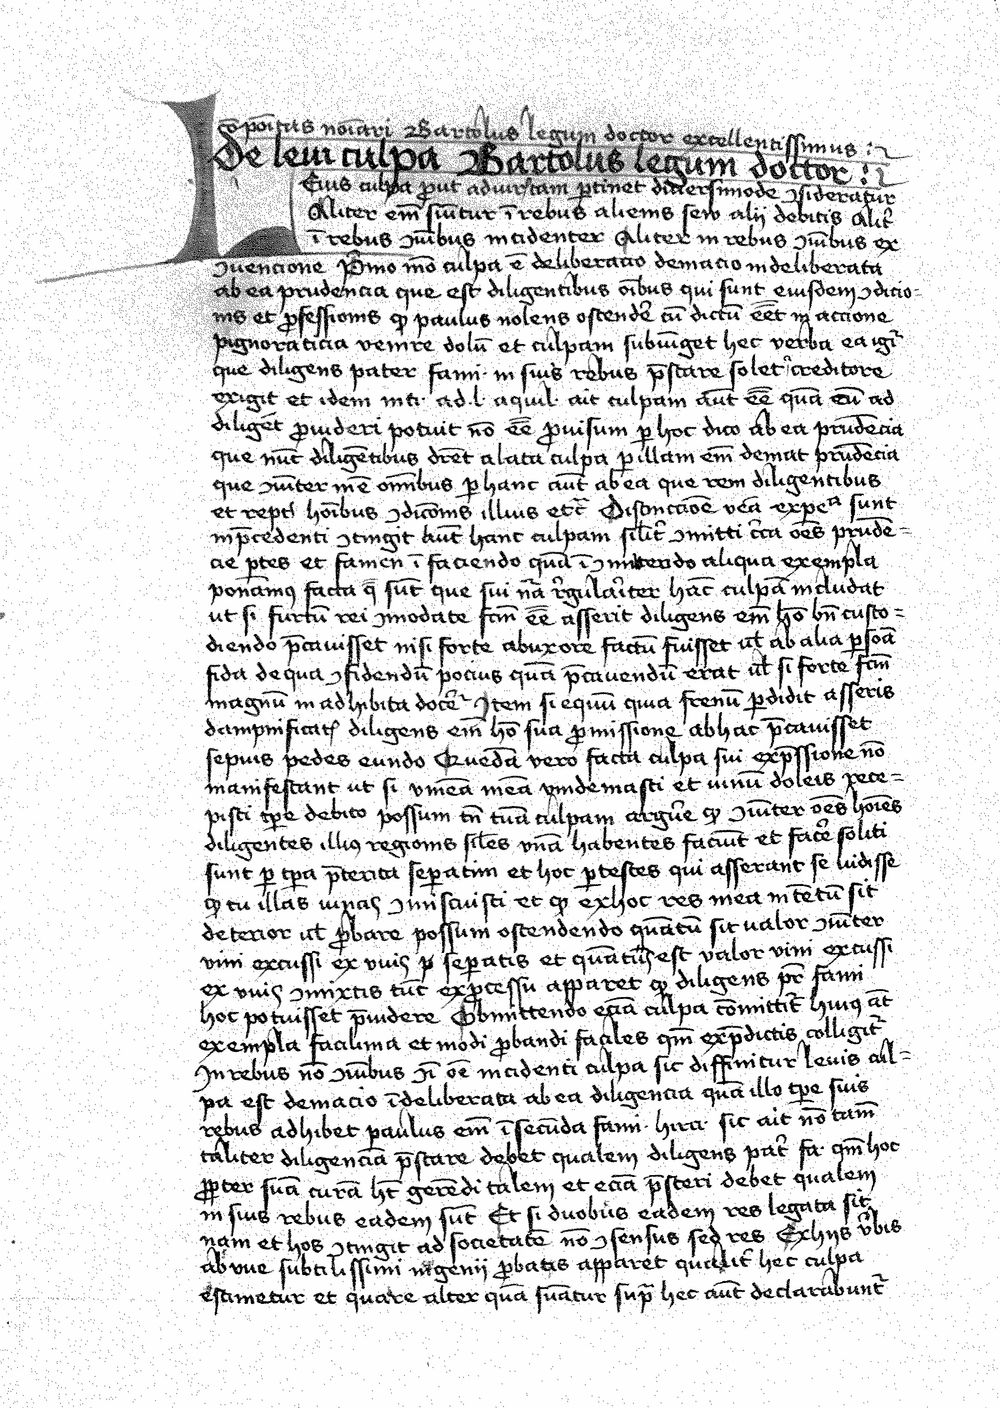 noiari Bartolus legum doctor excellentissimus
De leui culpa Bartolus legum doctor
Leuis culpa put pertinet diuersimode ɔsideratur
Aliter em̄ sumitur ī rebus alienis seu alij debitis Alit̄
ī rebus ɔībus incidenter Aliter in rebus ɔībus ex
ɔuencione Primo mo culpa ē deliberacio demacio indeliberata
ab ea prudencia que est diligentibus oībus qui sunt eiusdem ɔdicio=
nis et pfessionis qp paulus nolens ostendē cū dictū eēt in accione
pignoraticia venire dolū et culpam subiūget hec verba ea igr̄
que diligens pater fami· in suis rebus pstare solet creditore
exigit et idem ad·l· aquil· ait culpam aūt eē quā cū ad
diligēt puideri potuit nō eē puisum p hoc dico ab ea prudēcia
que nūc diligētibus alata culpa p illam em̄ demat prudēcia
que ɔiūter īē omnibus p hanc aūt ab ea que rem diligentibus
et hoībus ɔdicōnis illius Distinctiōe sunt
īpcedenti ɔtingit aūt hanc culpam silit̄ ɔmitti c̄ca oēs prudē=
cie ptes et tamen ī faciendo quā ī aliqua exempla
ponamꝰ facta q̄ sūt que sui nā rgulariter hāc culpā includat
ut si furtū rei ɔmodate fcm̄ eē asserit diligens em̄ hō bn̄ custo=
diendo pcauisset nisi forte ab uxore factū fuisset ul ab alia psoā
fida de qua ɔfidendū pocius quā pcauendū erat ul si forte fcm̄
magnū adhibita docēr Item si equū qui a frenū pdidit asseris
dampnificatū diligens em̄ hō sua pmissione ab hac pcauisset
sepius pedes eundo Quedā vero facta culpā sui expssione nō
manifestant ut si vineā meā vindemasti et vinū doleis rece=
pisti tpe debito possum tn̄ tuā culpam argūe qp ɔiūter oēs hoīes
diligentes illiꝰ regionis siles vineā habentes faciūt et facē soliti
sunt p tpa pterita sepatim et hoc p testes qui asserant se uidisse
qp tu illas uuas ɔmiscuisti et qp ex hoc res mea intētū sit
deterior ul pbare possum ostendendo quātū sit ualor ɔiūter
vini excussi ex vuis p sepatis et quātus est valor vini excussi
ex vuis ɔmixtis tūc ex pcessu apparet qp diligens pr̄ fami
hoc potuisset puidere Obmittendo eciā culpa cōmittit̄ huiꝰ aūt
exempla facilima et modi pbandi faciles qm̄ ex pdictis colligit̄
In rebus nō ɔīibus incidenti culpa sic diffinitur leuis cul=
pa est demacio īdeliberata ab ea diligencia quā illo tpe suis
rebus adhibet paulus em̄ ī secūda fami· hirci· sic ait nō tam̄
taliter diligenciā pstare debet qualem diligens pat̄ fa· qm̄ hoc
ppter suā curā ht̄ gerēdi talem et eciā pstari debet qualem
in suis rebus eadem sūt Et si duobus eadem res legata sit
nam et hos ɔtingit ad societatē nō ɔsensus sed res Ex hijs ubis
ab vue subtilissimi ingenij pbatis apparet qualit̄ hec culpa
estimetur et quare alter quā sumatur supra hec aūt declarabunt̄